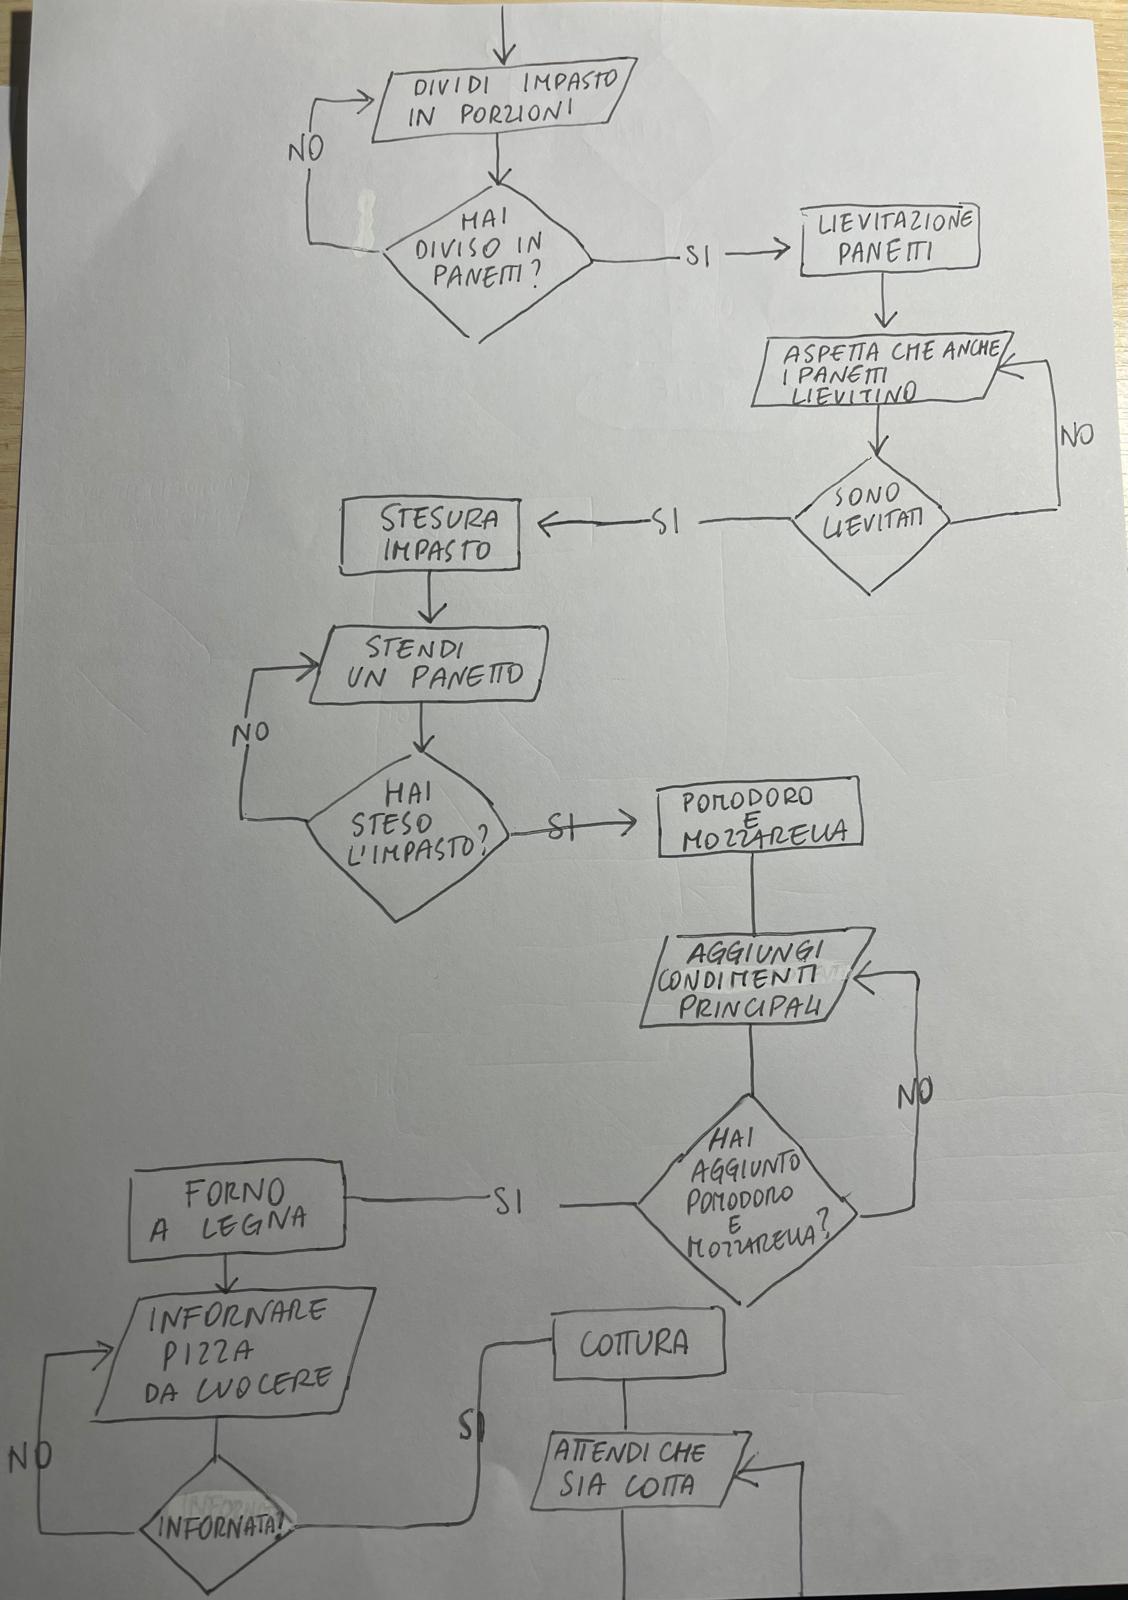 DIVIDI IMPASTO
IN PORZIONI
NO
HAI
DIVISO IN
PANETTI?
SI
LIEVITAZIONE
PANETTI
ASPETTA CHE ANCHE
I PANETTI
LIEVITINO
NO
SONO
LIEVITATI
SI
STESURA
IMPASTO
STENDI
UN PANETTO
NO
HAI
STESO
L'IMPASTO?
SI
POMODORO
E
MOZZARELLA
AGGIUNGI
CONDIMENTI
PRINCIPALI
NO
HAI
AGGIUNTO
POMODORO
E
MOZZARELLA?
SI
FORNO
A LEGNA
INFORNARE
PIZZA
DA CUOCERE
NO
INFORNATA?
SI
COTTURA
ATTENDI CHE
SIA COTTA